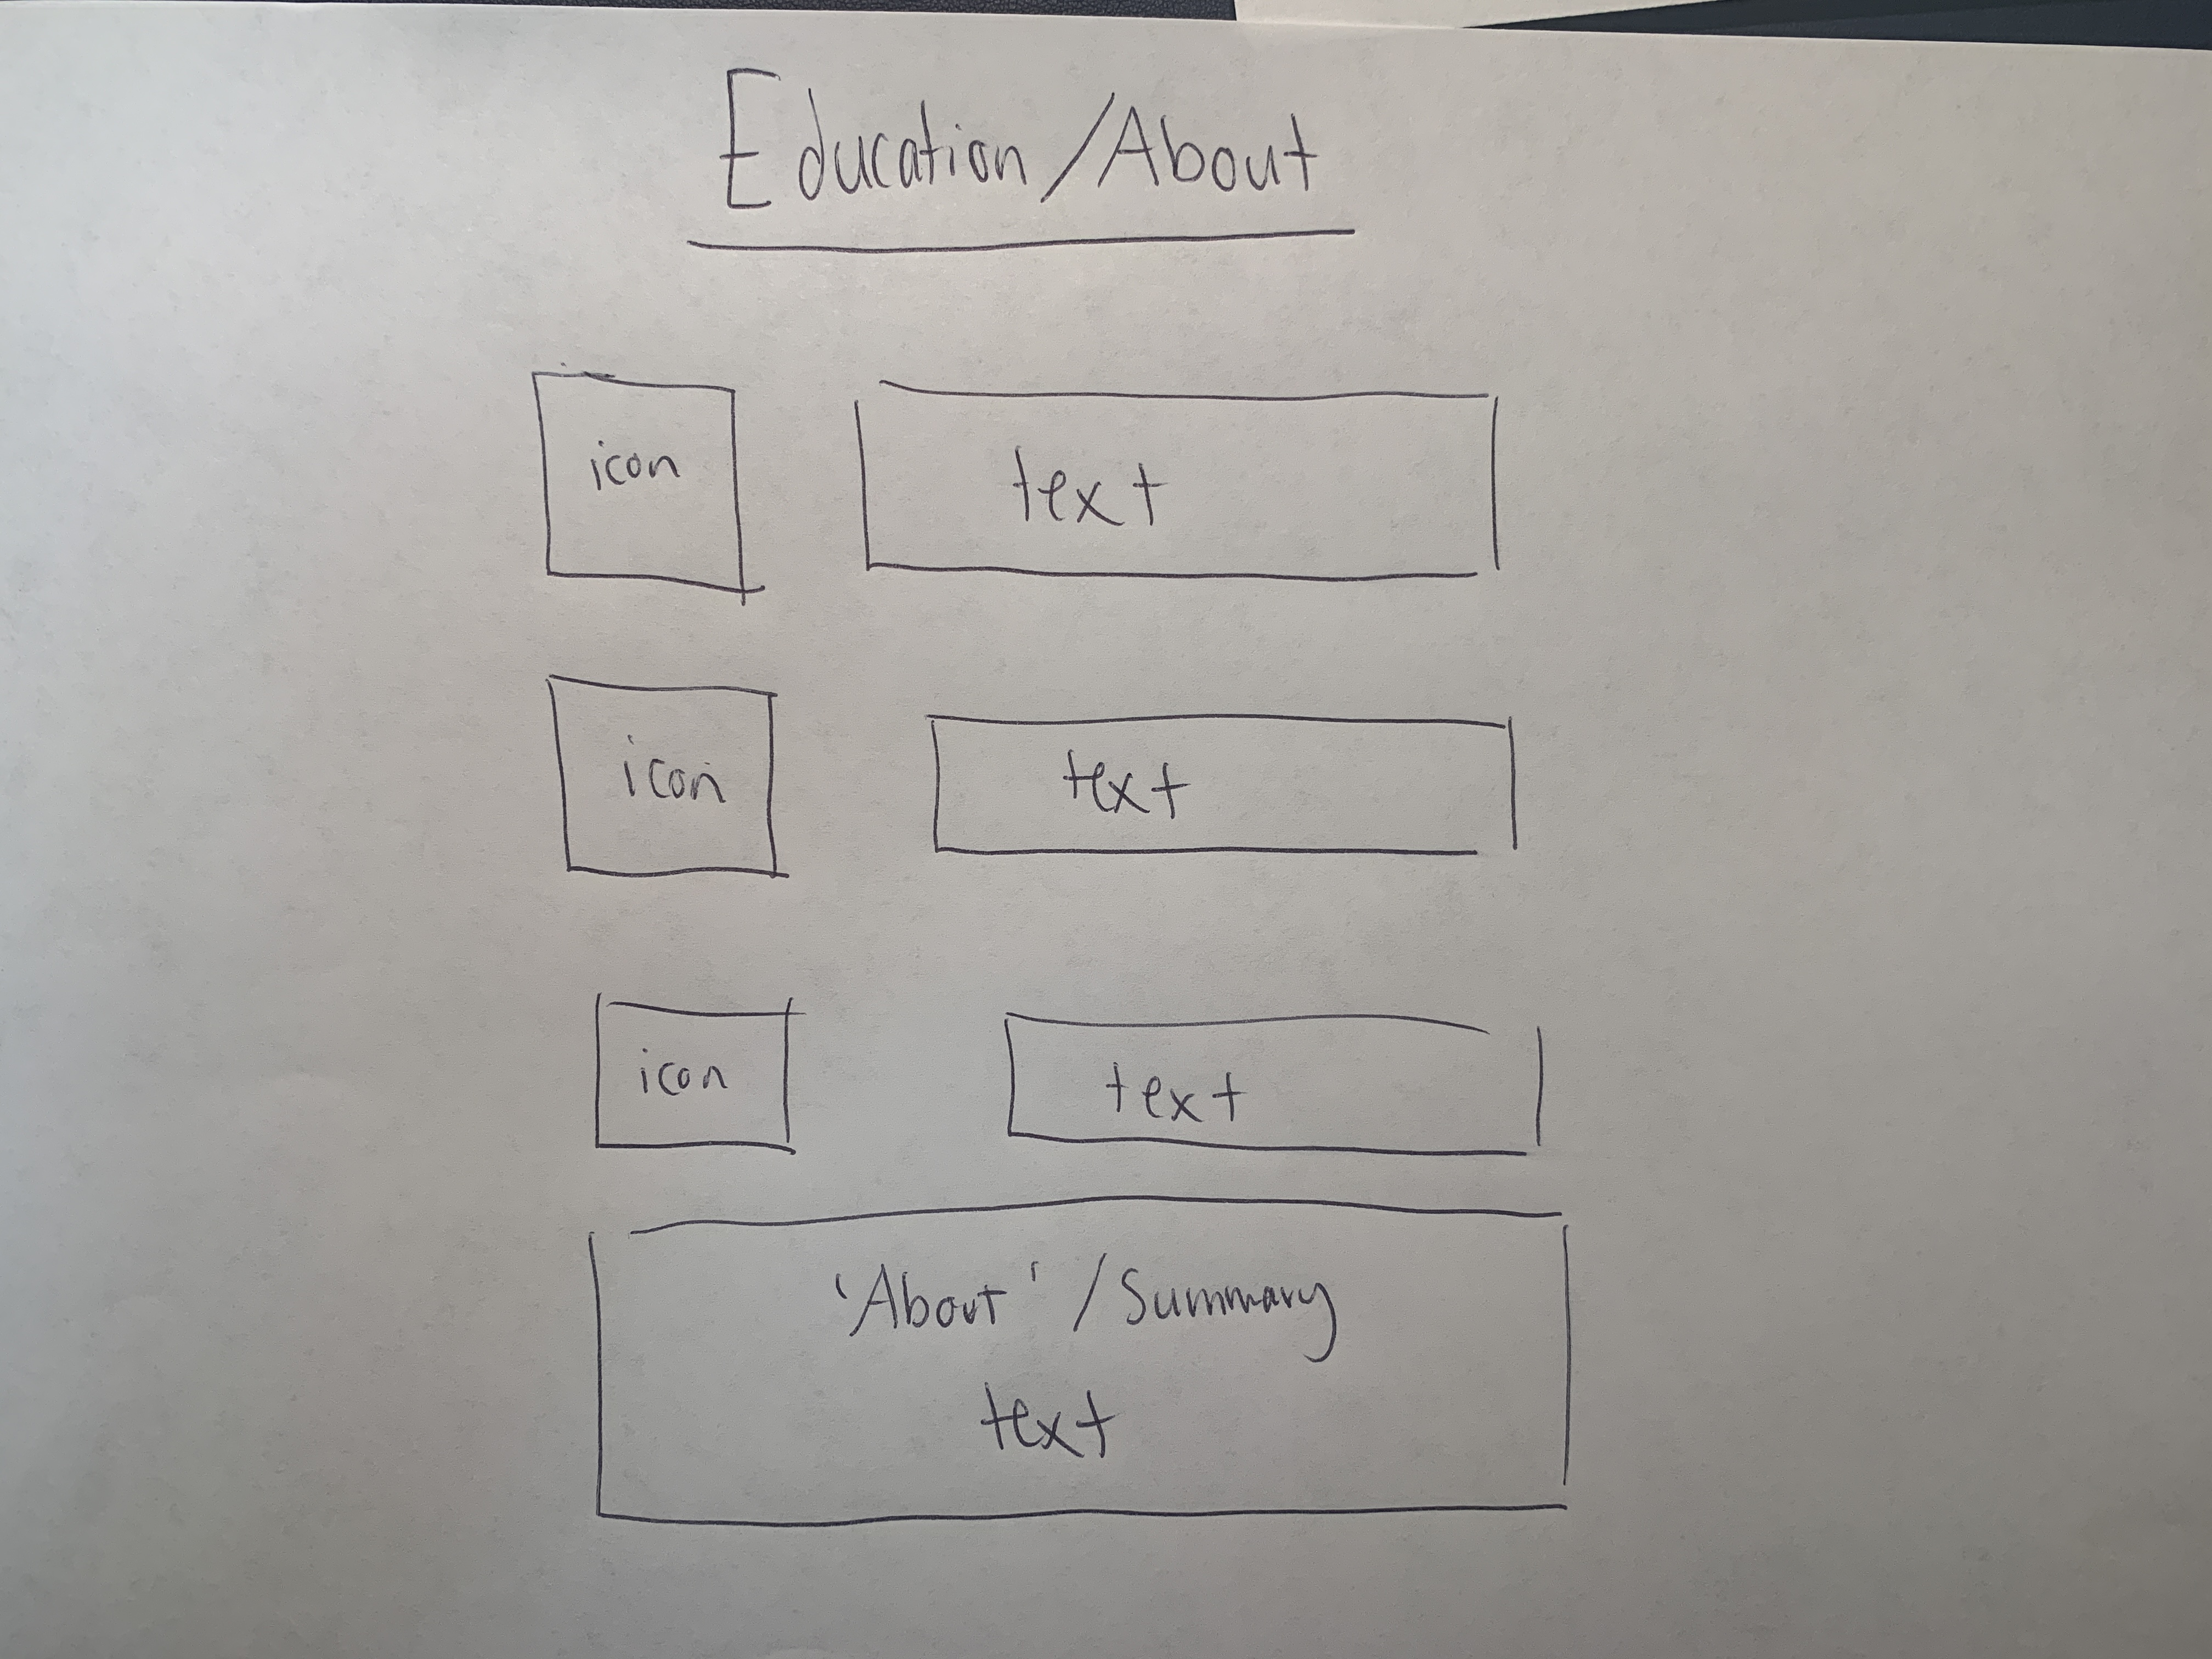 Education/About
icon
text
icon
text
icon
text
'About'/Summary
text